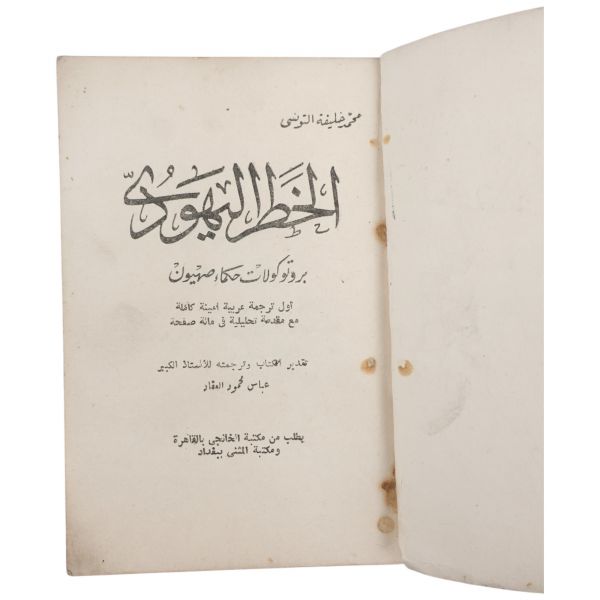 محمد خليفة التونسى
الخطر اليهودى
بروتوكولات حكماء صهيون
أول ترجمة عربية امينة كاملة
مع مقدمة تحليلية فى مائة صفحة
تقدير الكتاب وترجمته للأستاذ الكبير
عباس محمود العقاد
يطلب من مكتبة الخانجى بالقاهرة
ومكتبة المثنى ببغداد